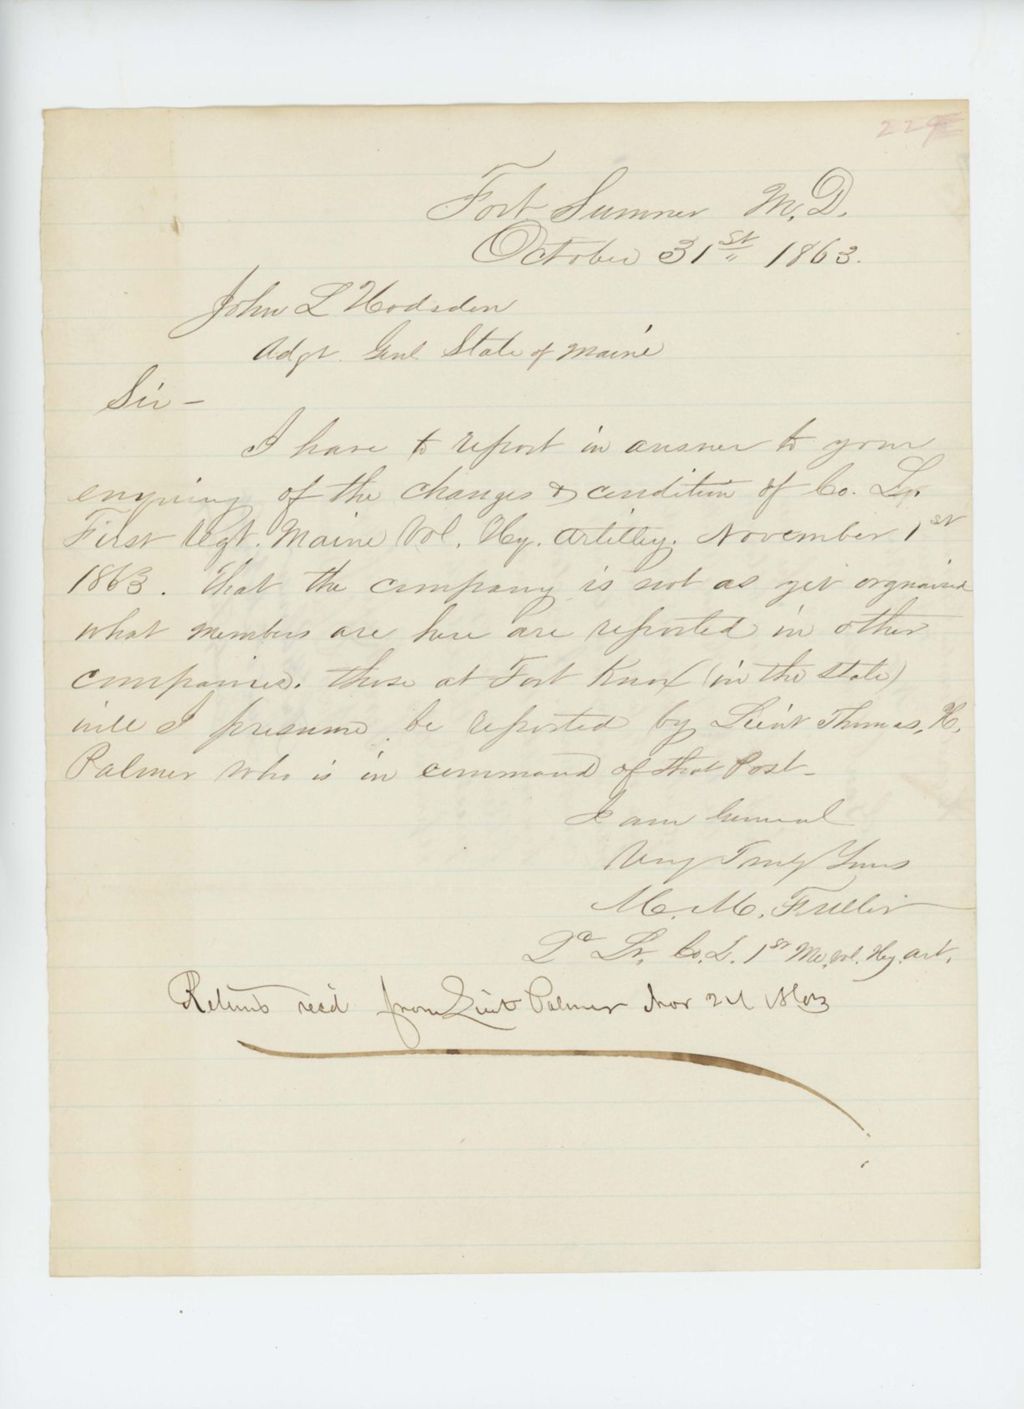 Fort Sumner M.D.
October 31st 1863.
John L Hodsdon
Adgt. Genl State of Maine
Sir –
I have to report in answer to your
enquiring of the changes & condition of Co. L,
First Regt. Maine Vol. Hy. Artilley. November 1st
1863. that the company is not as yet orgnaised
what members are here are reported in other
companies. those at Fort Knox (in the state)
will I presume, be reported by Lieut Thomas, H.
Palmer who is in command of that Post –
I am General
Very Truly Yours
M. M. Fuller
Lt. Co. L. 1st Me. Vol. Hy. art.
Returns rec'd from Lieut Palmer Nov 2d 1863